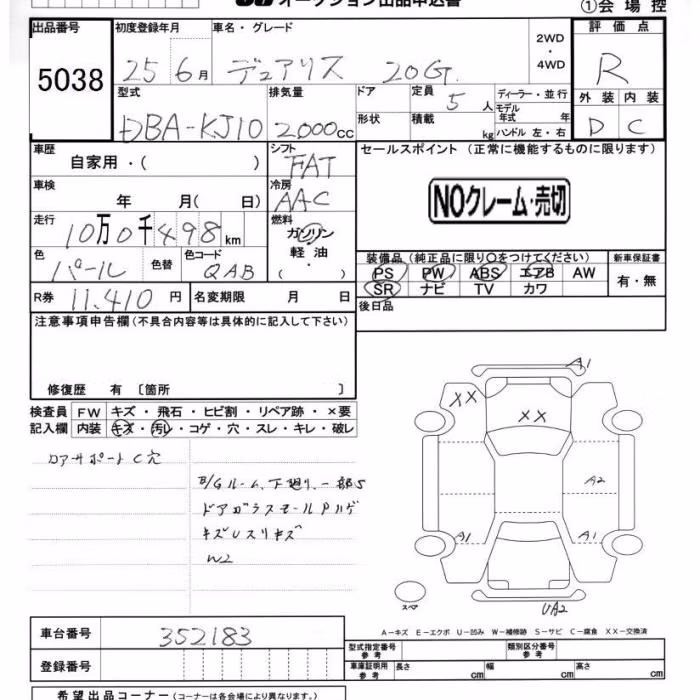 オークション出品申込書
①会場控
出品番号 初度登録年月 車名・グレード 2WD・4WD 評価点
5038 25 6月 デュアリス 20G R
型式 排気量 ドア 定員 5人 ディーラー・並行 外装 内装
DBA-KJ10 2000cc 形状 積載 kg モデル年式 年 D C
ハンドル 左・右
車歴 シフト セールスポイント (正常に機能するものに限ります)
自家用・( ) FAT
車検 冷房 NOクレーム・売切
年 月( 日) AAC
走行 燃料
10万0千498km ガソリン
色 色替 色コード 軽油 装備品 (純正品に限り○をつけてください) 新車保証書
パール QAB ( ・ ) PS PW ABS エアB AW 有・無
SR ナビ TV カワ
R券 11,410円 名変期限 月 日 後日品
注意事項申告欄(不具合内容等は具体的に記入して下さい)
修復歴 有 〔箇所 〕
検査員 FW キズ・飛石・ヒビ割・リペア跡・×要
記入欄 内装 キズ・汚レ・コゲ・穴・スレ・キレ・破レ
A1
XX
XX
コアサポートC穴
B/Gルーム、下廻り、一部S A2
ドアガラスモールPハゲ
キズUスリキズ A1 A1
W2
スペア UA2
A-キズ E-エクボ U-凹み W-補修跡 S-サビ C-腐食 XX-交換済
車台番号 352183
型式指定番号 参考 類別区分番号 参考
登録番号 車庫証明用 参考 長さ cm 幅 cm 高さ cm
希望出品コーナー (コーナーは各会場により異なります。)